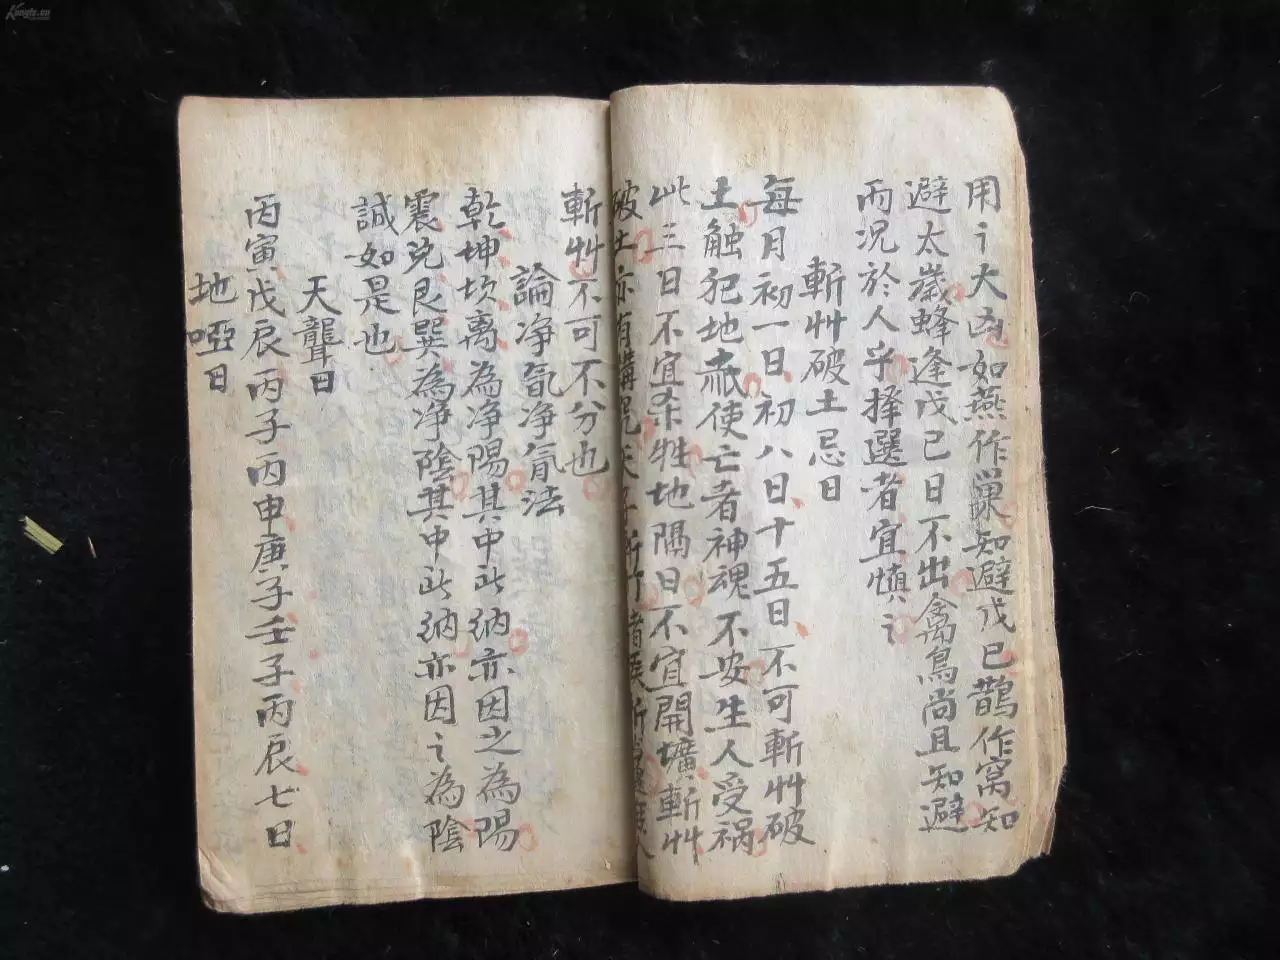 用之大凶如燕作巢知避戊巳鹊作窩知
避太歲蜂逢戊巳日不出禽鳥尚且知避
而况於人乎择選者宜慎之
斬艸破土忌日
每月初一日初八日十五日不可斬艸破
土触犯地祇使亡者神魂不安生人受禍
此三日不宜杀牲地隔日不宜開壙斬艸
破土亦有講究天子斬 者 斬 人
斬艸不可不分也
論净氣净氣法
乾坤坎离為净陽其中所納亦因之為陽
震兌艮巽為净陰其中所納亦因之為陰
誠如是也
天聾日
丙寅戊辰丙子丙申庚子壬子丙辰七日
地啞日